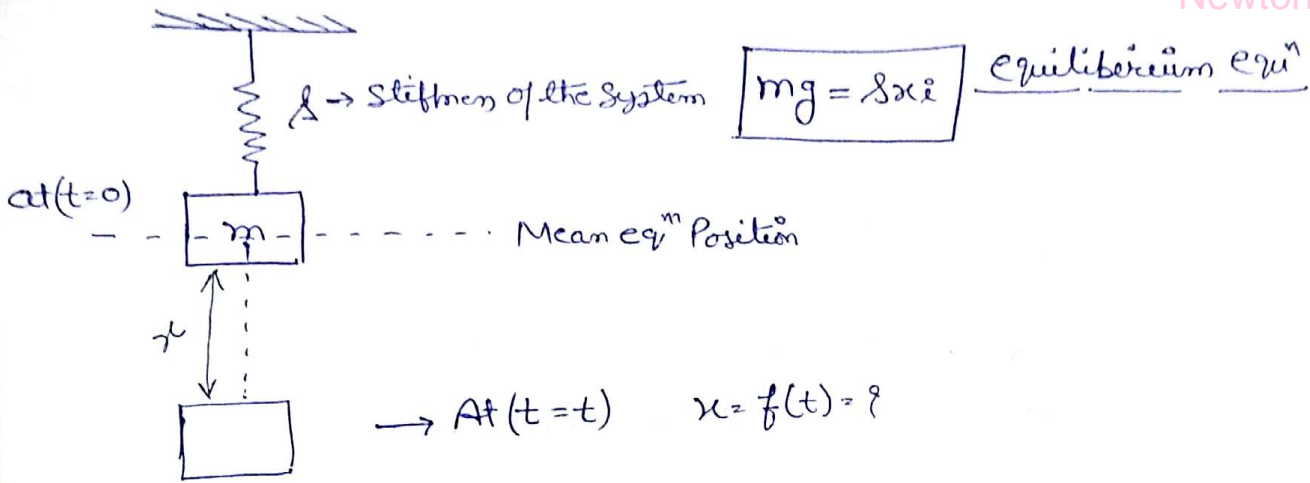 Newton
S → Stiffness of the System
mg = Sxi
equiliberium equⁿ
at(t=0)
m
Mean eqᵐ Position
x
→ At (t = t)
x = f(t) = ?